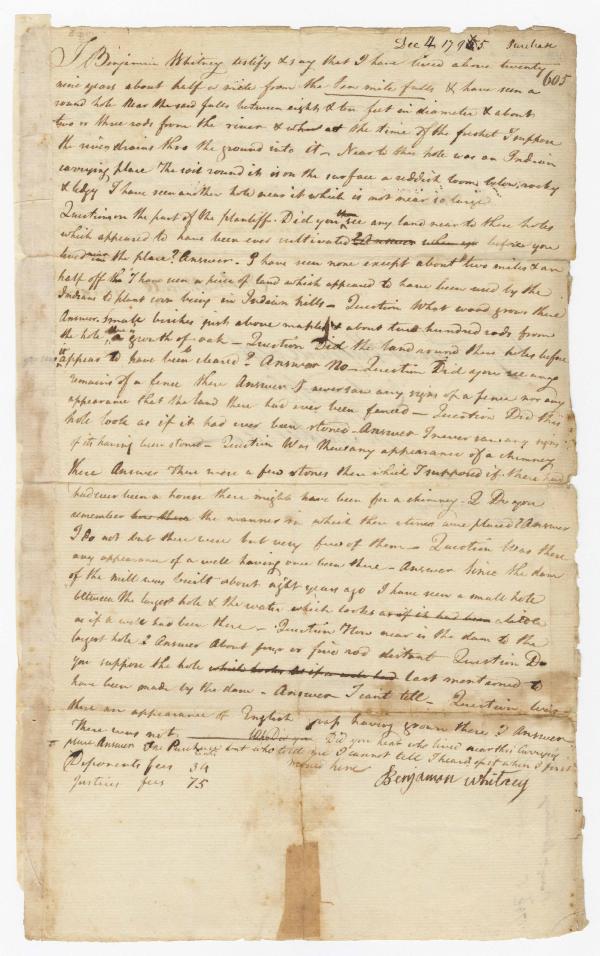 Dec 4 1795 Purchase
605
I Benjamin Whitney testify & say that I have lived above twenty
nine years about half a mile from the Ten mile falls & have seen a
round hole near the said falls between eight & ten feet in diameter & about
two or three rods from the river & when at the time of the freshet I suppose
the river drains thro the ground into it - Near to this hole was an Indian
carrying place The soil round it is on the surface a reddish loom below rocky
& ledgy I have seen another hole near it which is not near so large
Question on the part of the plantiff. Did you then see any land near to these holes
which appeared to have been ever cultivated before you
lived in the place? Answer - I have seen none except about two miles & an
half off the I have seen a piece of land which appeared to have been used by the
Indians to plant corn being in Indian hills - Question What wood grows there
Answer. Small birches just above maples & about two hundred rods from
the hole there is a growth of oak - Question Did the land round these holes before
appear to have been cleared? Answer No - Question Did you see any
remains of a fence there Answer I never saw any signs of a fence nor any
appearance that the land there had ever been fenced - Question Did this
hole look as if it had ever been stoned - Answer I never saw any signs
of its having been stoned - Question Was there any appearance of a chimney
there Answer There were a few stones there which I supposed if there had
had ever been a house there might have been for a chimney - Q Do you
remember the manner in which these stones were placed? Answer
I do not but there were but very few of them - Question Was there
any appearance of a well having once been there - Answer Since the dam
of the mill was built about eight years ago I have seen a small hole
between the largest hole & the water which looks as if it had been a little
as if a well had been there - Question How near is the dam to the
largest hole? Answer About four or five rod distant Question Do
you suppose the hole which looks as if a well had last mentioned to
have been made by the dam - Answer I cant tell - Question Was
there an appearance of English grass having grown there? Answer
There was not - Did you hear who lived near this Carrying
place Answer One Purchase but who told me I cannot tell I heard of it when I first
moved here
Deponents fees 34
Justices fees 75
Benjaman Whitney